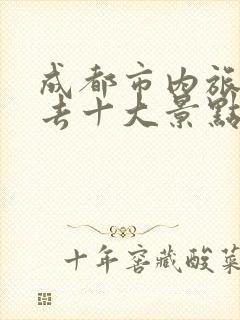 成都市内旅
去十大景點
十年窖藏酸菜